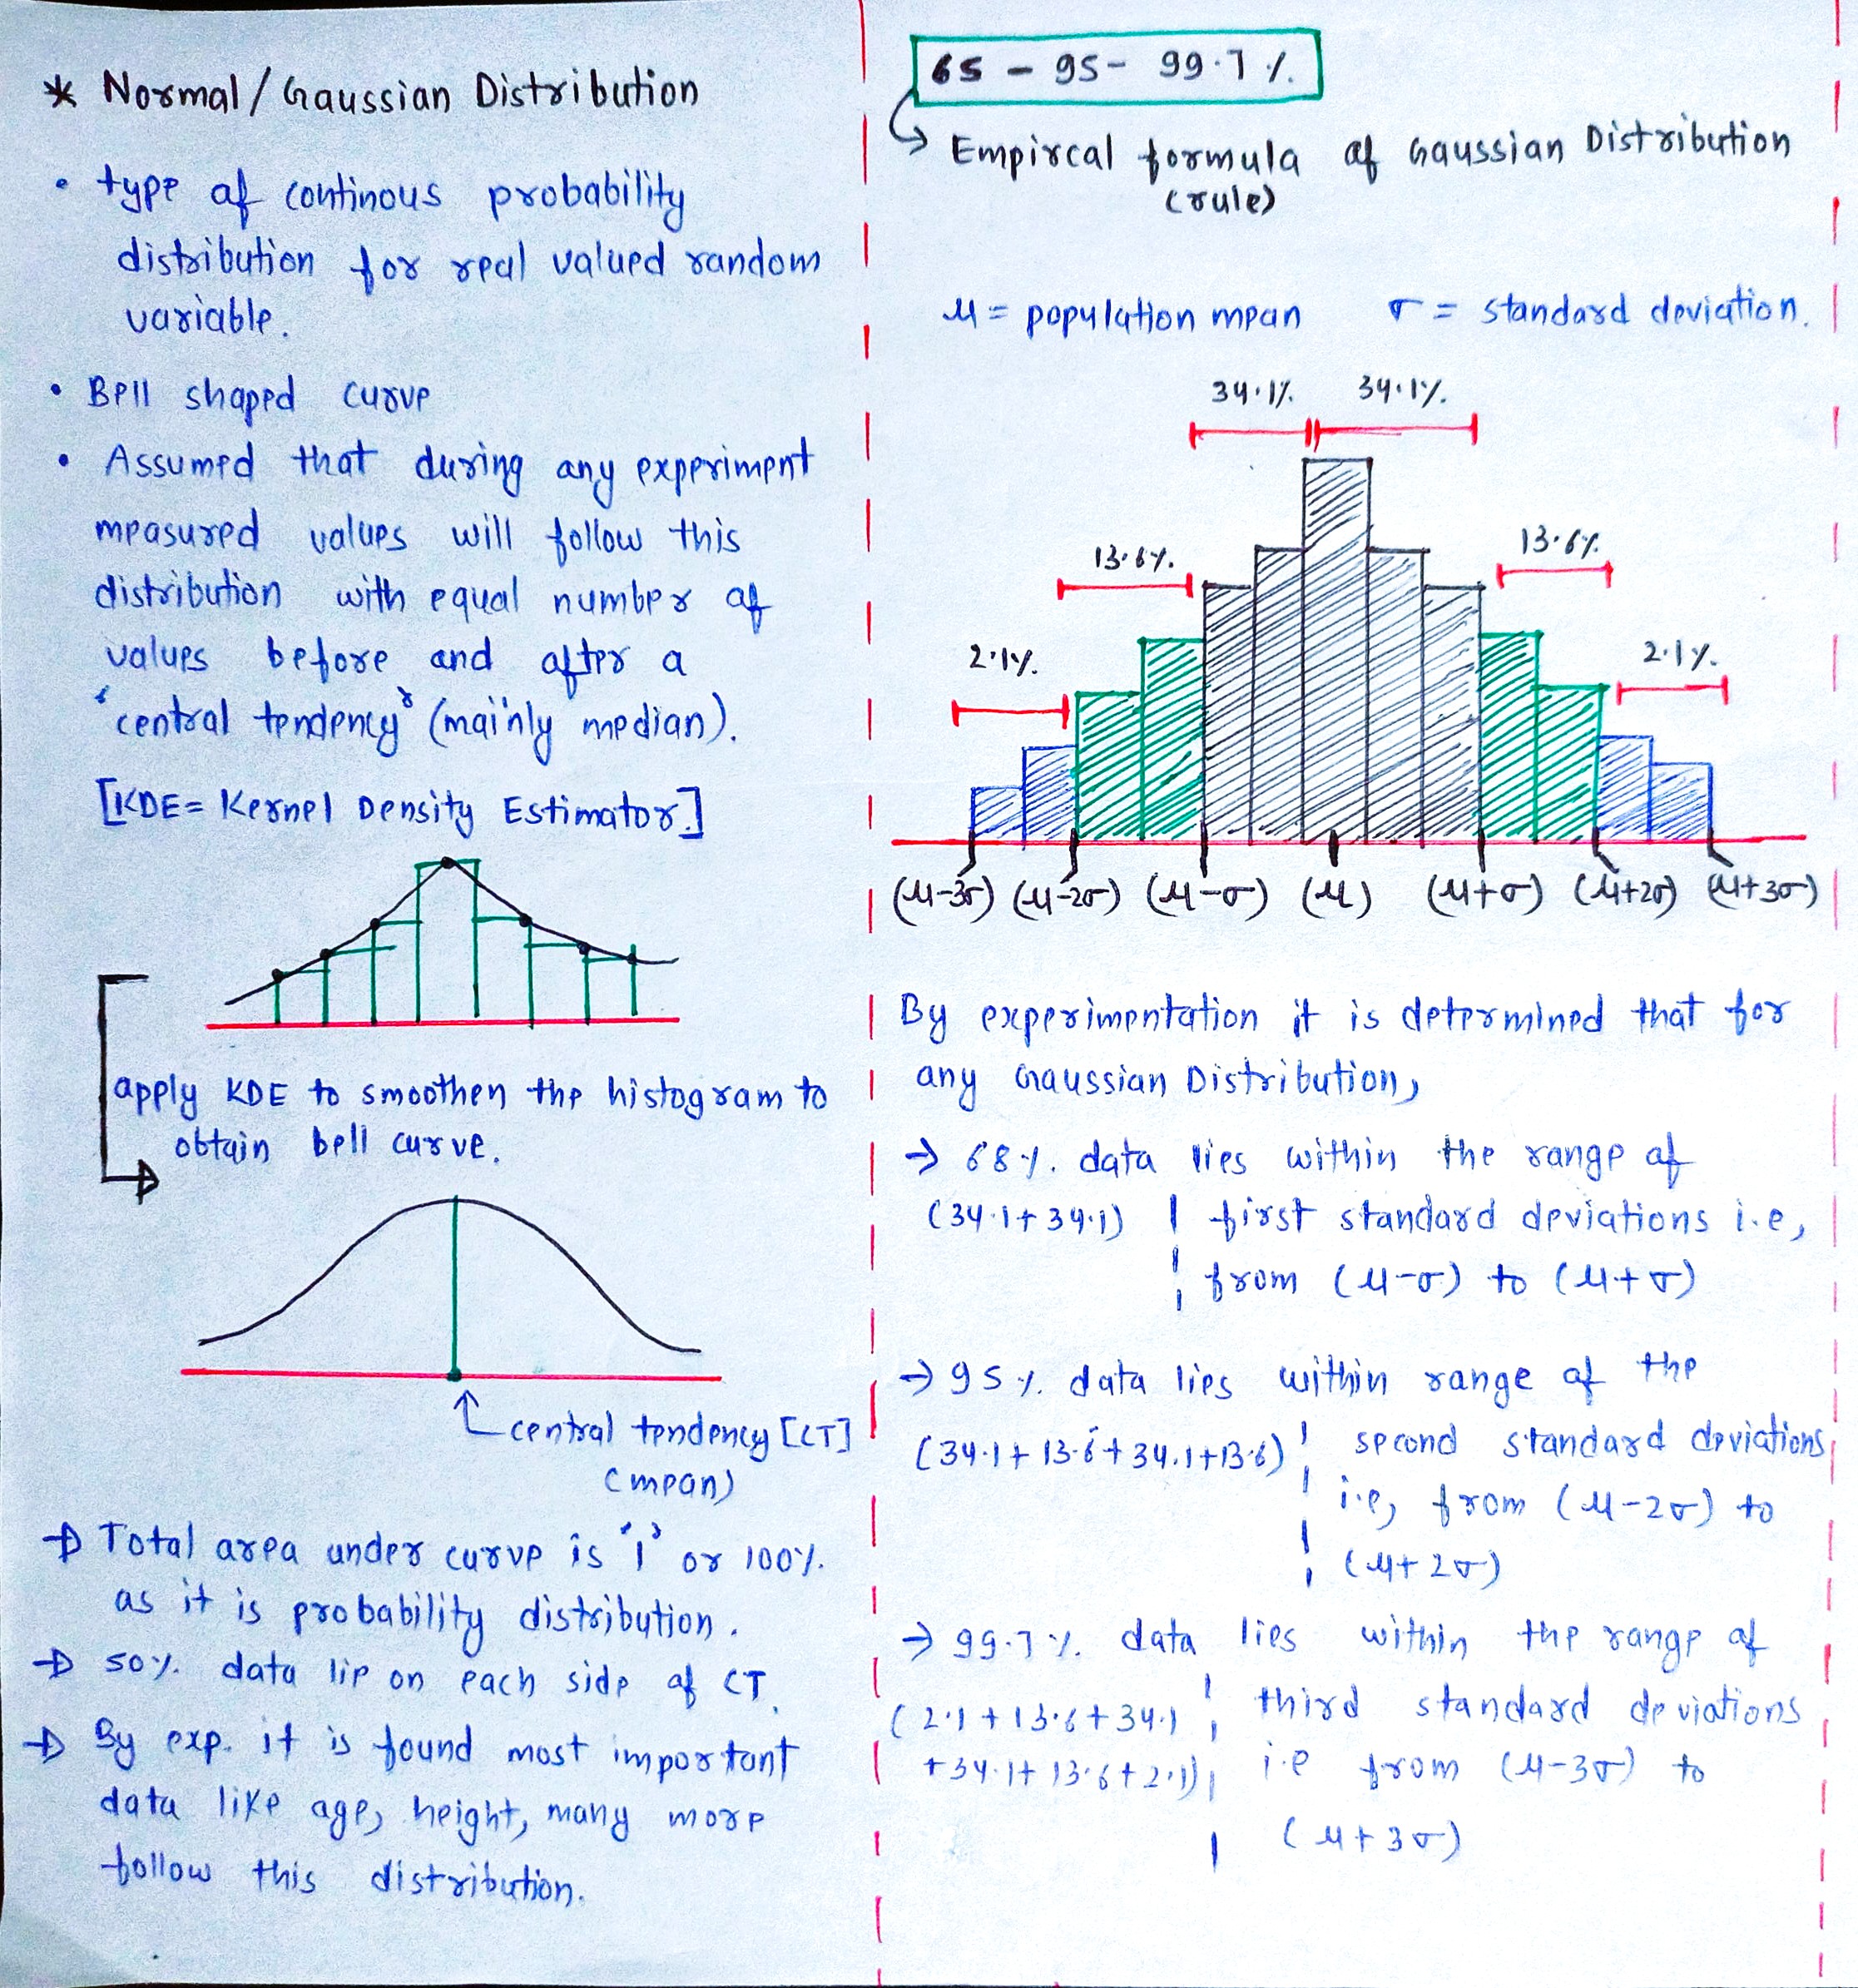 * Normal/Gaussian Distribution
• type of continous probability
distribution for real valued random
variable.
• Bell shaped curve
• Assumed that during any experiment
measured values will follow this
distribution with equal number of
values before and after a
'central tendency' (mainly median).
[KDE = Kernel Density Estimator.]
apply KDE to smoothen the histogram to
obtain bell curve.
central tendency [CT]
(mean)
→ Total area under curve is '1' or 100%.
as it is probability distribution.
→ 50% data lie on each side of CT.
→ By exp. it is found most important
data like age, height, many more
follow this distribution.
65 - 95 - 99.7%
→ Empircal formula of Gaussian Distribution
(rule)
μ = population mean σ = standard deviation.
34.1% 34.1%
13.6% 13.6%
2.1% 2.1%
(μ-3σ) (μ-2σ) (μ-σ) (μ) (μ+σ) (μ+2σ) (μ+3σ)
By experimentation it is determined that for
any Gaussian Distribution,
→ 68% data lies within the range of
(34.1+34.1) first standard deviations i.e,
from (μ-σ) to (μ+σ)
→ 95% data lies within range of the
(34.1+13.6+34.1+13.6) second standard deviations
i.e, from (μ-2σ) to
(μ+2σ)
→ 99.7% data lies within the range of
(2.1+13.6+34.1 third standard deviations
+34.1+13.6+2.1) i.e from (μ-3σ) to
(μ+3σ)